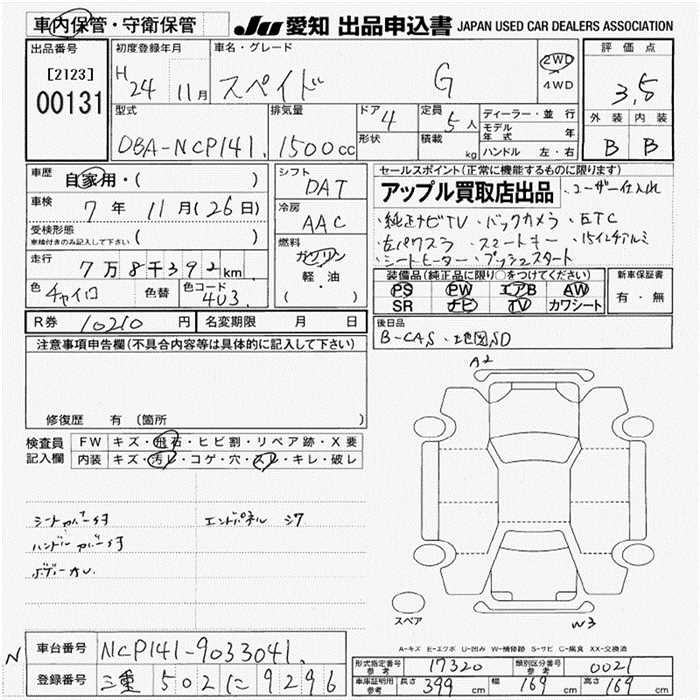 車内保管・守衛保管
JU 愛知 出品申込書 JAPAN USED CAR DEALERS ASSOCIATION
出品番号
[2123]
00131
初度登録年月
H 24 11月
車名・グレード
スペイド G
2WD
4WD
評価点
3.5
外装 内装
B B
型式
DBA-NCP141.
排気量
1500cc
ドア 4
形状
定員 5人
積載 kg
ディーラー・並行
モデル年式 年
ハンドル 左・右
車歴
自家用・( )
車検
7年 11月(26日)
受検形態
車検付きのみ記入して下さい ( )
走行
7万8千392km
色 チャイロ 色替
色コード 4U3.
シフト
DAT
冷房
AAC
燃料
ガソリン
軽・油
( )
セールスポイント(正常に機能するものに限ります)
アップル買取店出品 ・ユーザー仕入れ
・純正ナビTV ・バックカメラ ・ETC
・左パワスラ ・スマートキー ・15インチアルミ
・シートヒーター ・プッシュスタート
装備品(純正品に限り○をつけてください)
PS PW エアB AW
SR ナビ TV カワシート
新車保証書
有・無
R券 10210円
名変期限 月 日
後日品
B-CAS ・地図SD
注意事項申告欄(不具合内容等は具体的に記入して下さい)
修復歴 有 〔箇所 〕
検査員
記入欄
FW キズ・飛石・ヒビ割・リペア跡・X要
内装 キズ・汚レ・コゲ・穴・スレ・キレ・破レ
エンドパネル
A2
W3
スペア
A-キズ E-エクボ U-凹み W-補修跡 S-サビ C-腐食 XX-交換済
N
車台番号 NCP141-9033041.
登録番号 三重 502 に 9296
形式指定番号 参考 17320
類別区分番号 参考 0021
車庫証明用 参考 長さ 399cm 幅 169cm 高さ 169cm